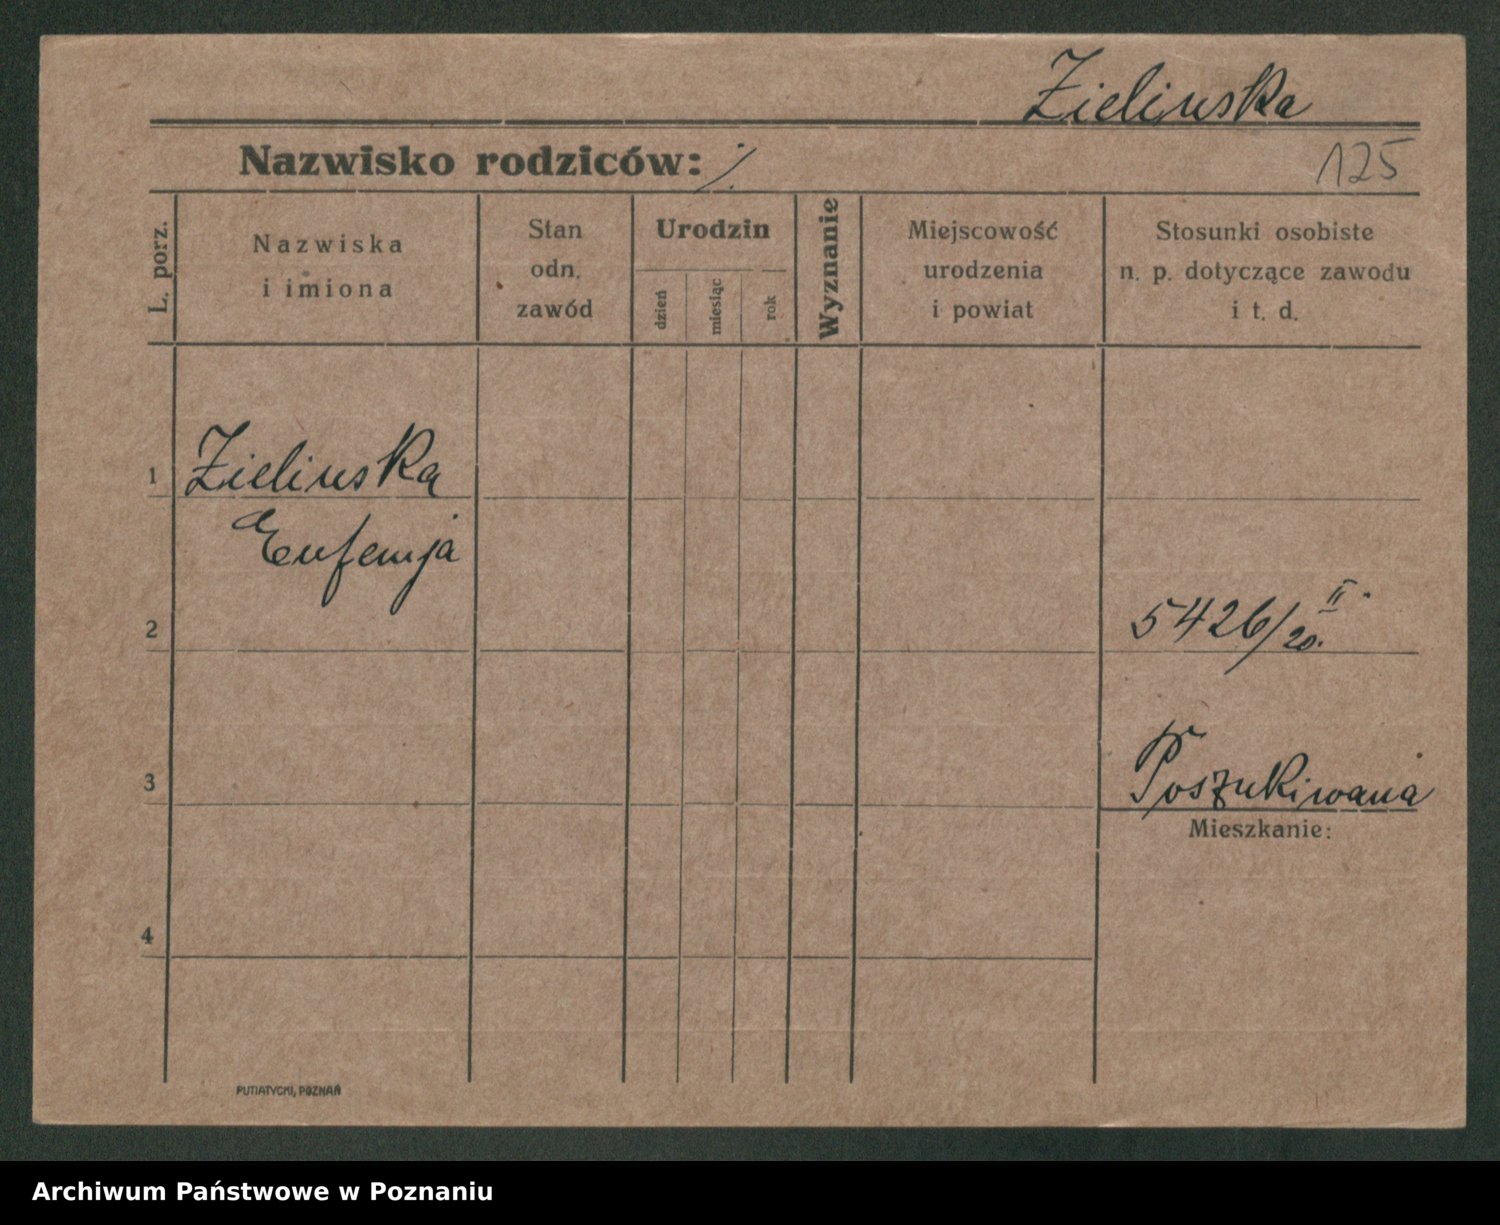 Zielinska
Nazwisko rodziców: ٪
125
L. porz.
Nazwiska
i imiona
Stan
odn.
zawód
Urodzin
dzień
miesiąc
rok
Wyznanie
Miejscowość
urodzenia
i powiat
Stosunki osobiste
n. p. dotyczące zawodu
i t. d.
1 Zielinska
Eufemja
2
5426/20. II.
3
Poszukiwana
Mieszkanie:
4
PUTIATYCKI, POZNAŃ
Archiwum Państwowe w Poznaniu